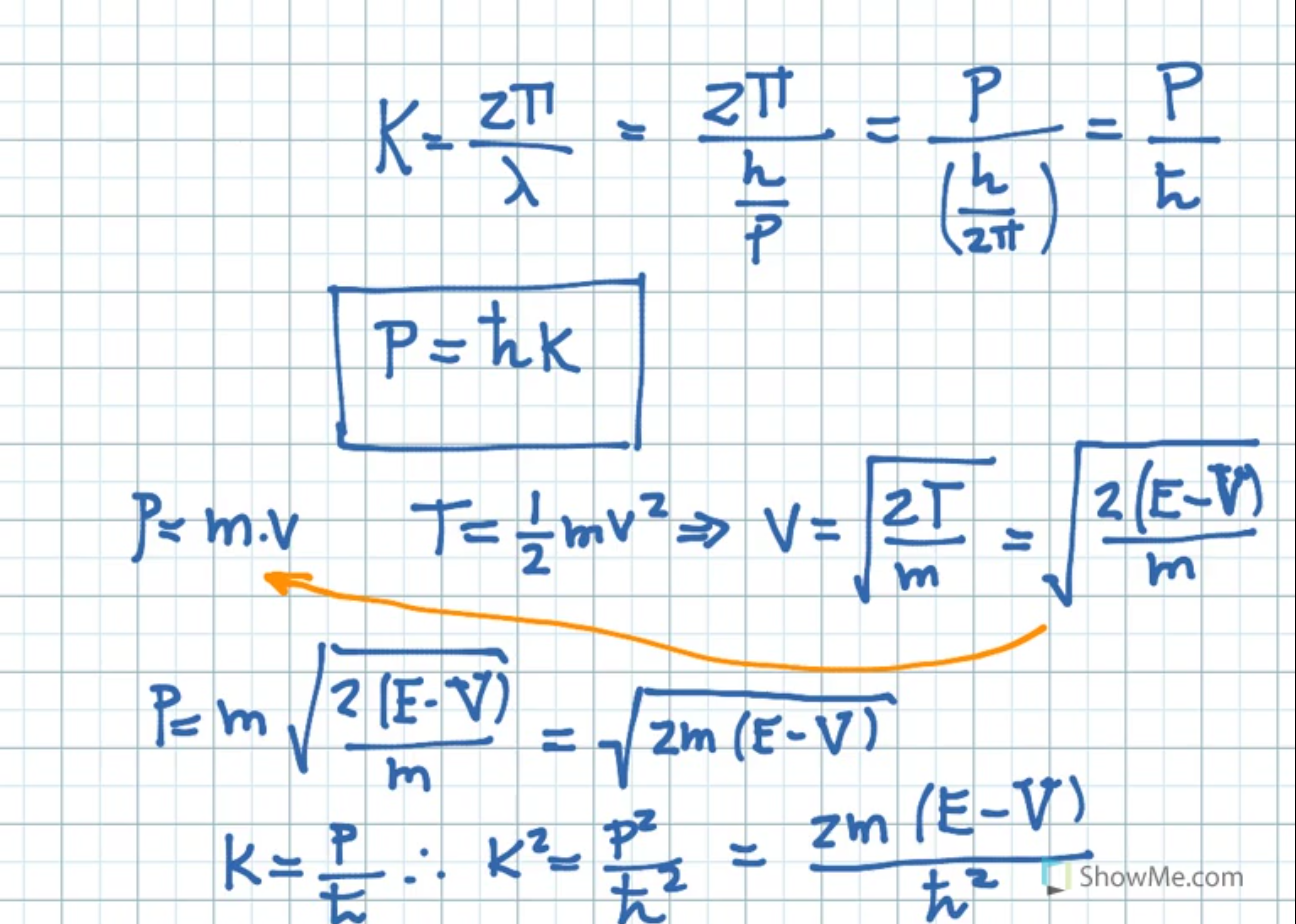 K = 2π/λ = 2π/(h/P) = P/(h/2π) = P/ħ
P = ħK
P = m.v T = 1/2 mv² ⇒ V = √(2T/m) = √(2(E-V)/m)
P = m √(2(E-V)/m) = √(2m(E-V))
K = P/ħ ∴ K² = P²/ħ² = 2m(E-V)/ħ²
ShowMe.com